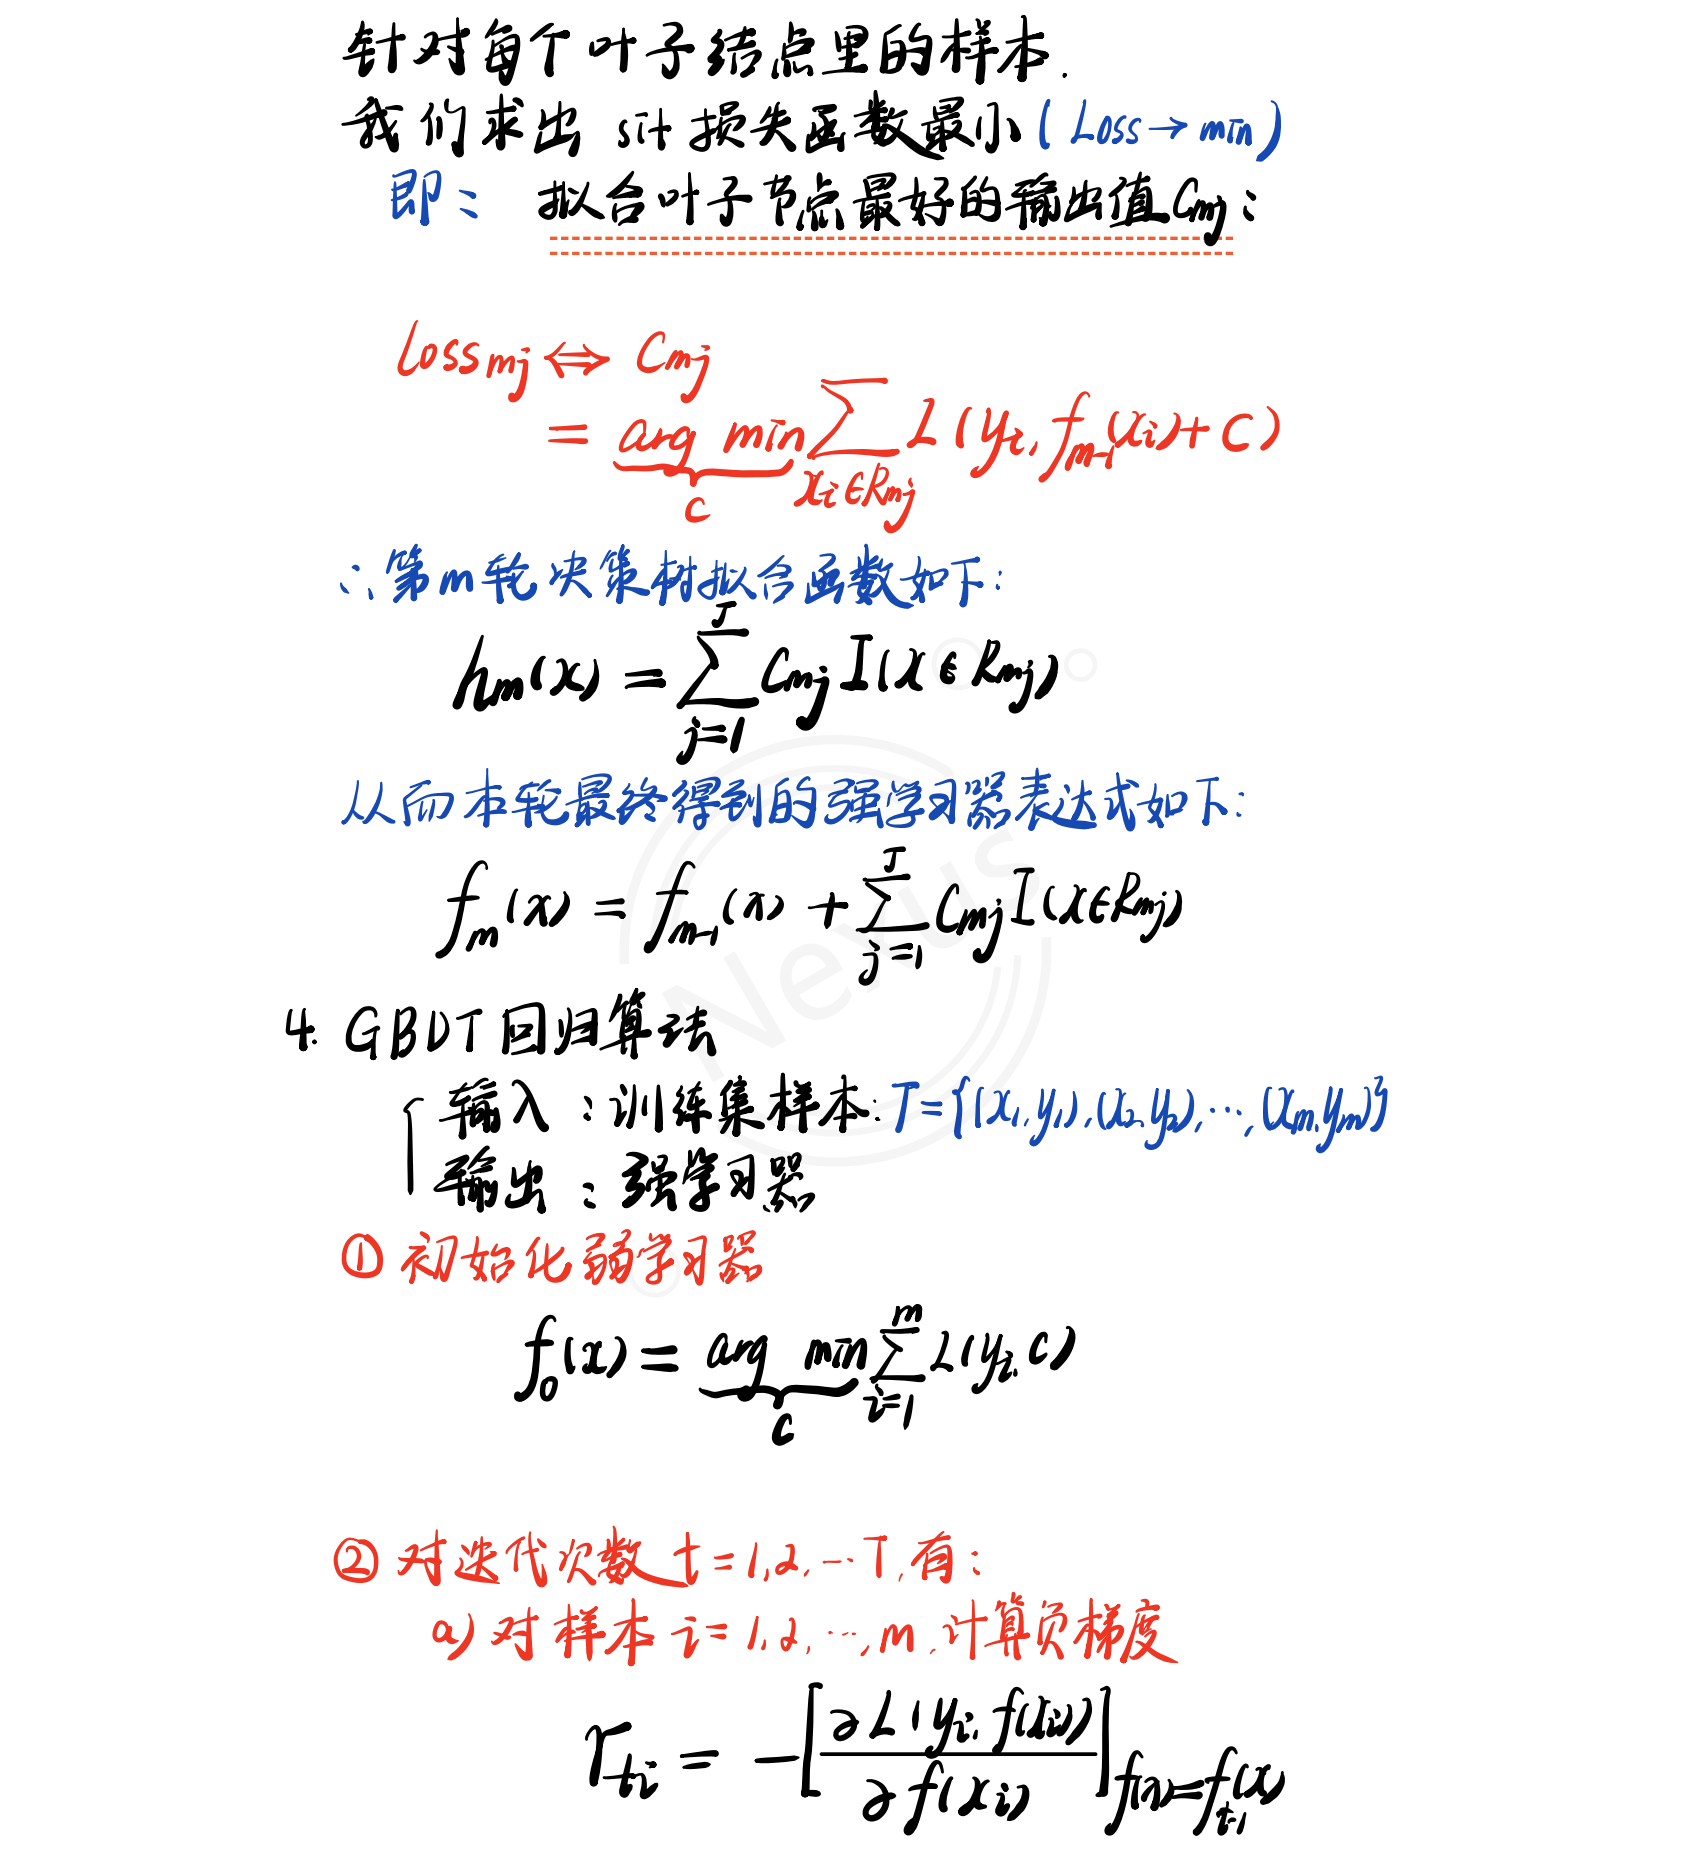 针对每个叶子结点里的样本.
我们求出 s.t 损失函数最小(Loss→min)
即: 拟合叶子节点最好的输出值Cmj:
Loss mj ⇔ Cmj
= arg min ∑ L(yi, fm-1(xi)+C)
c xi∈Rmj
∴第m轮决策树拟合函数如下:
J
hm(x) = ∑ Cmj I(x∈Rmj)
j=1
从而本轮最终得到的强学习器表达式如下:
J
fm(x) = fm-1(x) + ∑ Cmj I(x∈Rmj)
j=1
4. GBDT回归算法
输入:训练集样本:T={(x1,y1),(x2,y2),…,(xm,ym)}
输出:强学习器
① 初始化弱学习器
m
f0(x) = arg min ∑ L(yi, c)
c i=1
② 对迭代次数 t=1,2,…T,有:
a) 对样本 i=1,2,…,m,计算负梯度
rti = -[∂L(yi, f(xi)) / ∂f(xi)] f(x)=ft-1(x)
Nexus